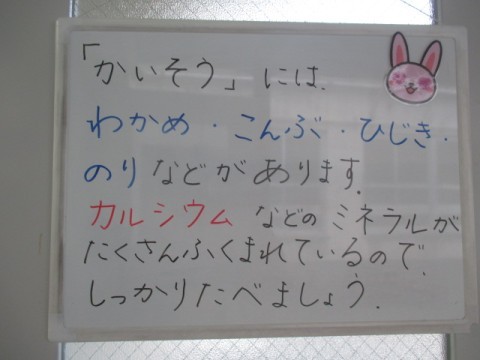 「かいそう」には、
わかめ・こんぶ・ひじき・
のりなどがあります。
カルシウムなどのミネラルが
たくさんふくまれているので、
しっかりたべましょう。